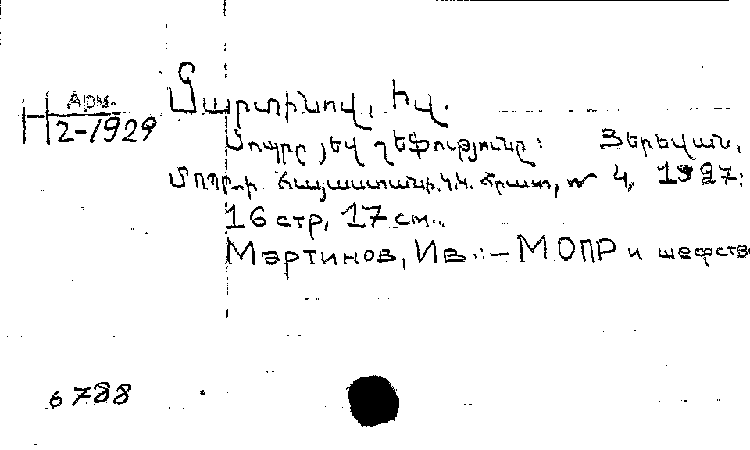 Арм.
2-1929
Մարտինով, Իվ.
Մոպրը յեվ շեֆությունը: Յերեվան,
ՄՈՊՐ-ի Հայաստանի Կ.Կ. հրատ, № 4, 1927:
16 стр, 17 см.
Мартинов, Ив.: — МОПР и шефство
6788